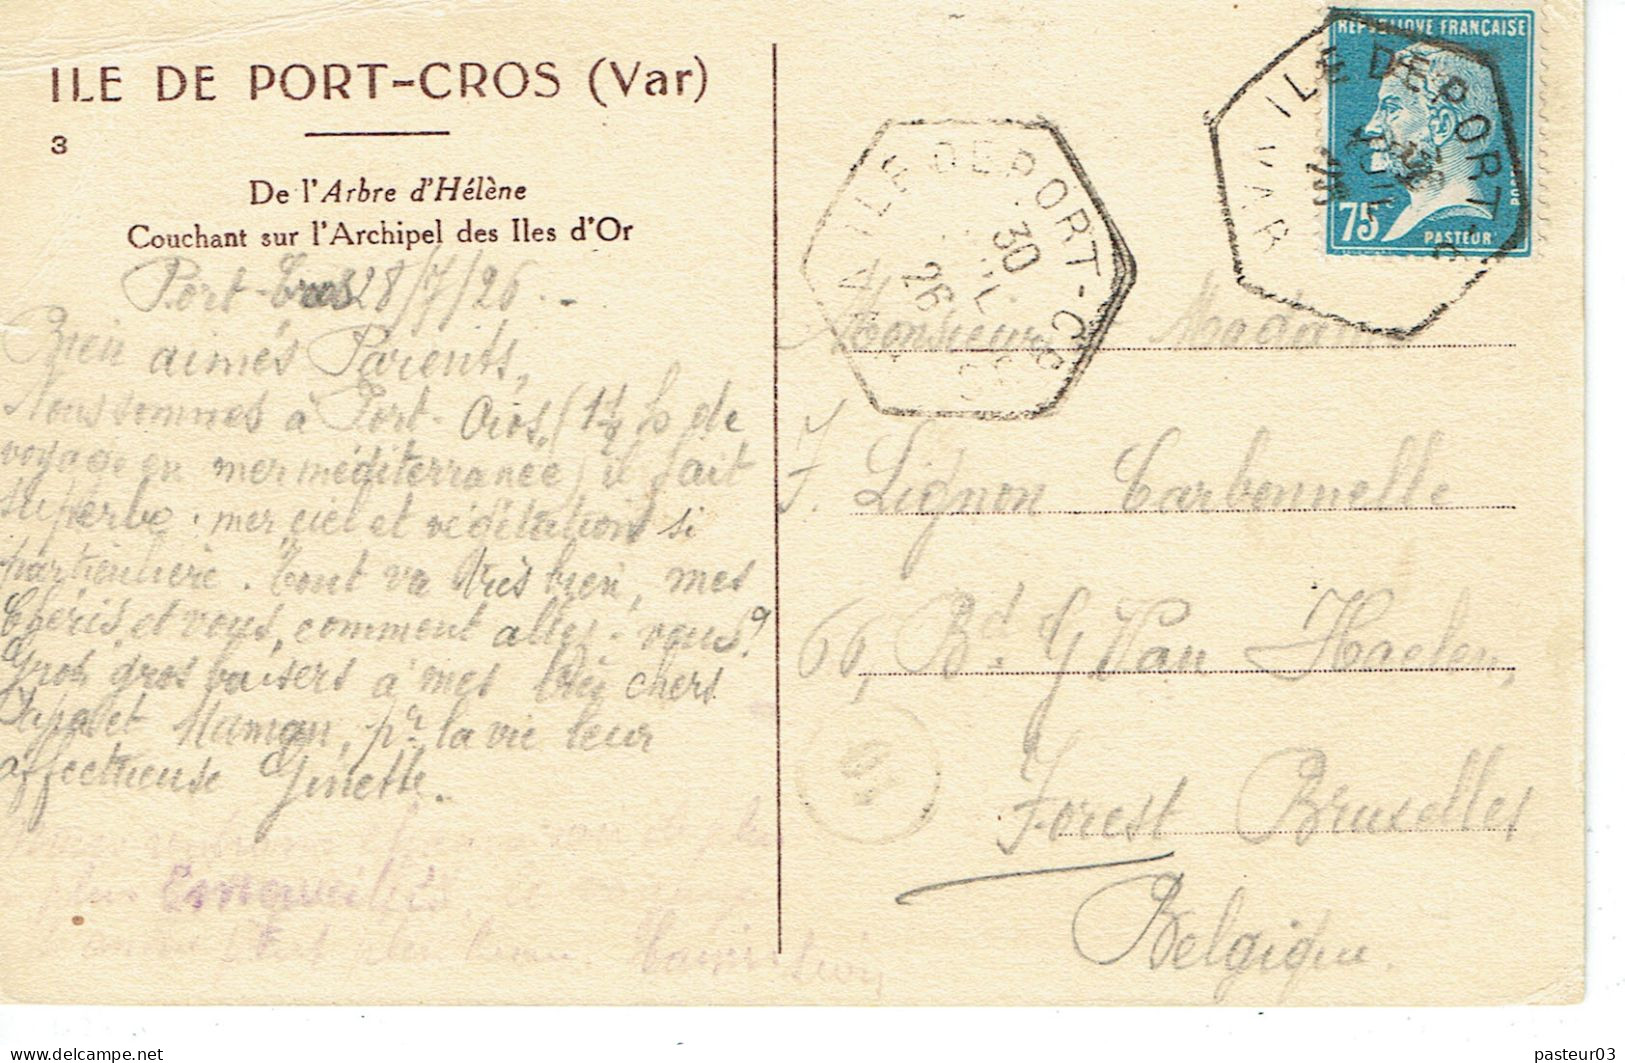 ILE DE PORT-CROS (Var)
3
De l'Arbre d'Hélène
Couchant sur l'Archipel des Iles d'Or
Port-Cros 28/7/26.
Bien aimés Parents,
Nous sommes à Port-Cros, (1 1/2 h de
voyage en mer méditerranée) il fait
superbe. mer, ciel et végétation si
particulière. Tout va très bien, mes
Chéris, et vous, comment allez-vous?
Gros, gros baisers à mes très chers
Papa et Maman, pr la vie leur
affectueuse Ginette.
plus Emerveillés
REPUBLIQUE FRANÇAISE
75c
POSTES
PASTEUR
ILE DE PORT-CR
VAR
ILE DE PORT-CROS
30
26
Monsieur Madame
F. Lignon Carbonnelle
66, Bd. G Van Haelen,
Forest Bruxelles
Belgique.
pasteur03